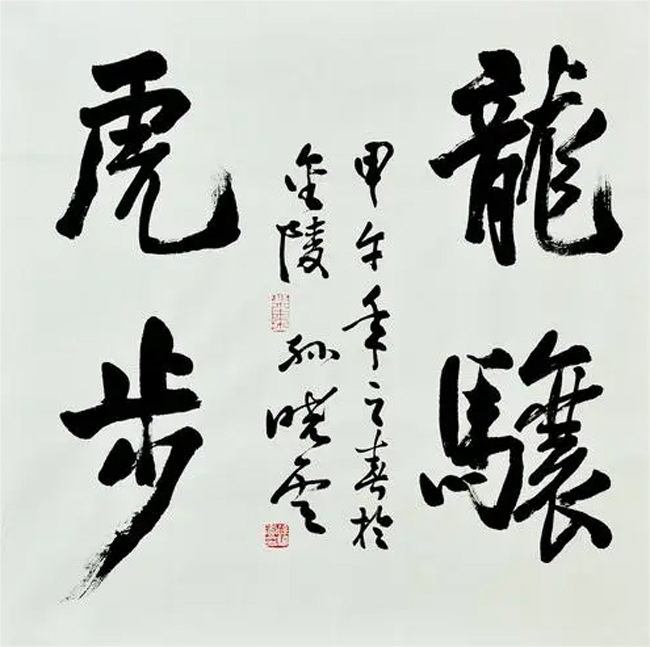 龍驤
甲午年之春於
金陵 孙晓云
虎步